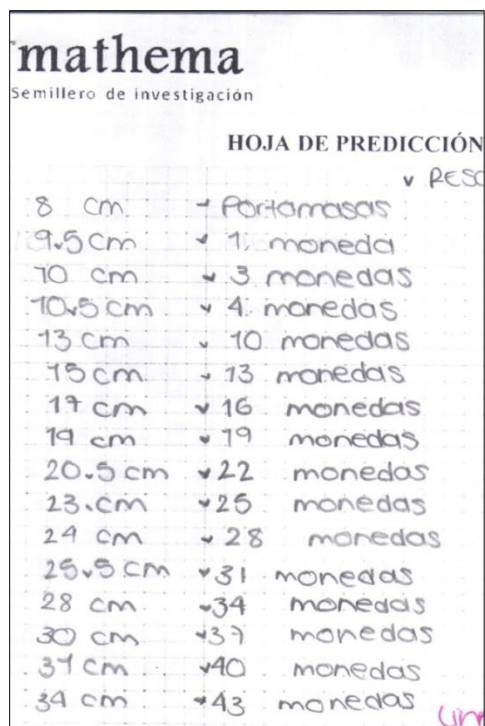 mathema
Semillero de investigación
HOJA DE PREDICCIÓN
RESO
8 cm Portamasas
9.5 cm 1 moneda
10 cm 3 monedas
10.5 cm 4 monedas
13 cm 10 monedas
15 cm 13 monedas
17 cm 16 monedas
19 cm 19 monedas
20.5 cm 22 monedas
23. cm 25 monedas
24 cm 28 monedas
25.5 cm 31 monedas
28 cm 34 monedas
30 cm 37 monedas
31 cm 40 monedas
34 cm 43 monedas